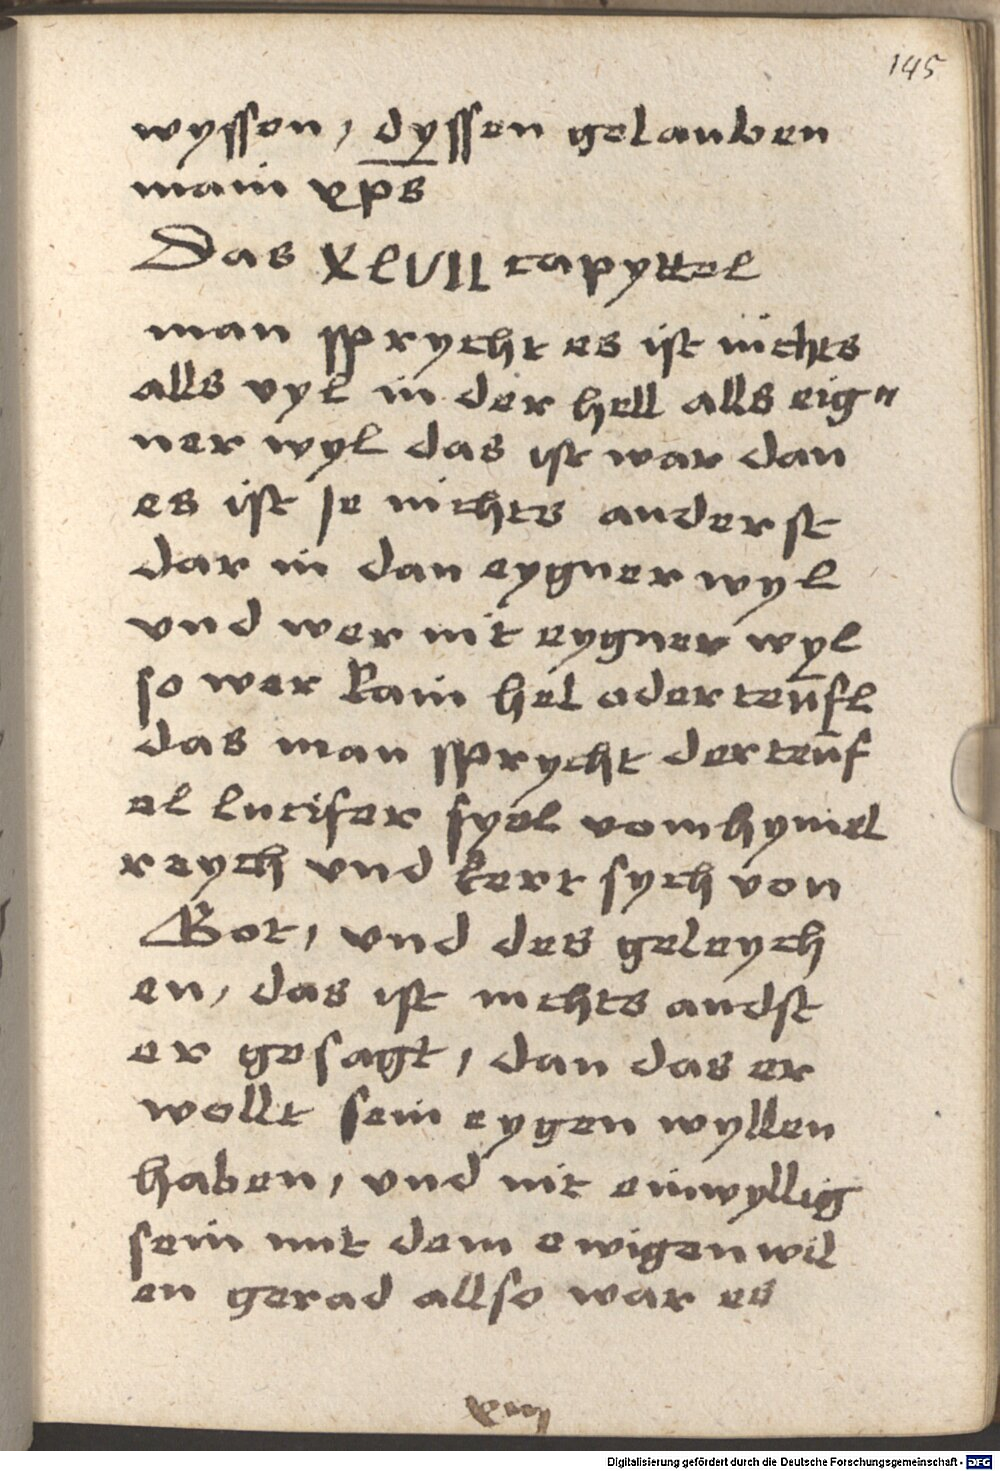 145
wyssen, dyssen gelauben
main xp̅s
Das XLVII capyttel
man sprycht es ist nichts
alls vyl in der hell alls eig"
ner wyl das ist war dan
es ist je nichts anderst
dar in dan eygner wyl
vnd wer nit eygner wyl
so wer kain hel oder teüfl
das man sprycht der teüf
el lucifer fyel vom hymel
reych vnd kert sych von
Got, vnd des geleych
en, das ist nichts andst
er gesagt, dan das er
wollt sein eygen wyllen
haben, vnd nit einwyllig
sein mit dem ewigen wil
en gerad allso war es
Digitalisierung gefördert durch die Deutsche Forschungsgemeinschaft - DFG